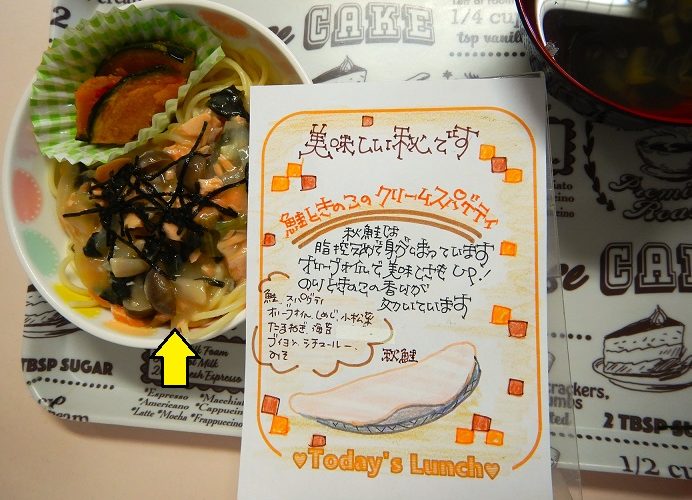 CAKE
1/4 cup
tsp vanilla
2
美味しい秋です
鮭ときのこのクリームスパゲティ
秋鮭は
脂控えめで身がしまっています
オリーブオイルで、美味しさをUP！
のりときのこの香りが
効いています
鮭、スパゲティ
オリーブオイル、しめじ、小松菜
たまねぎ、海苔
ブイヨン、シチュールー、
みそ
秋鮭
♥Today's Lunch♥
TBSP SUGAR
Foam
Milk
Espresso
*Espresso *Macchiato
*Americano *Cappuccino
*Latte *Mocha *Frappuccino
Premium
Roast
CAKE
crackers,
2 TBSP SUGAR
1/2 cup